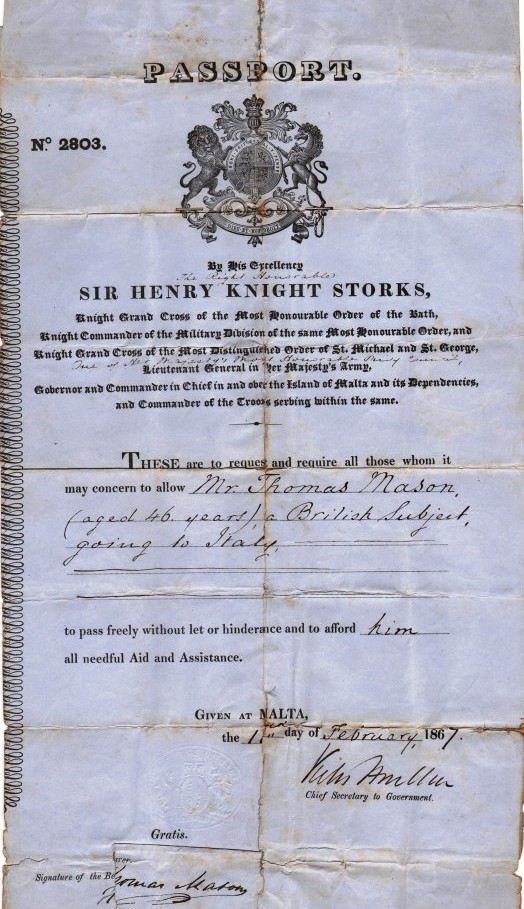 PASSPORT.
Nº 2803.
DIEU ET MON DROIT
By His Excellency
The Right Honorable
SIR HENRY KNIGHT STORKS,
Knight Grand Cross of the Most Honourable Order of the Bath,
Knight Commander of the Military Division of the same Most Honourable Order, and
Knight Grand Cross of the Most Distinguished Order of St. Michael and St. George,
One of Her Majesty's Most Honorable Privy Council,
Lieutenant General in Her Majesty's Army,
Governor and Commander in Chief in and over the Island of Malta and its Dependencies,
and Commander of the Troops serving within the same.
THESE are to request and require all those whom it
may concern to allow Mr. Thomas Mason,
(aged 46 years), a British Subject,
going to Italy,
to pass freely without let or hinderance and to afford him
all needful Aid and Assistance.
GIVEN AT MALTA,
the 1 day of February, 1867.
Chief Secretary to Government.
Gratis.
Signature of the Bearer.
Thomas Mason